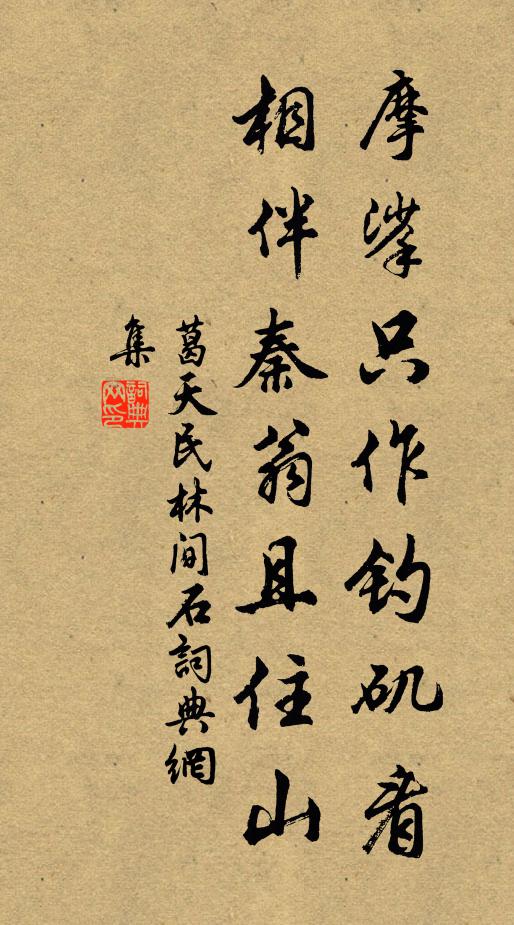 摩挲只作钓矶看
相伴秦翁且住山
葛天民林间石詞典網
集
詞典網印